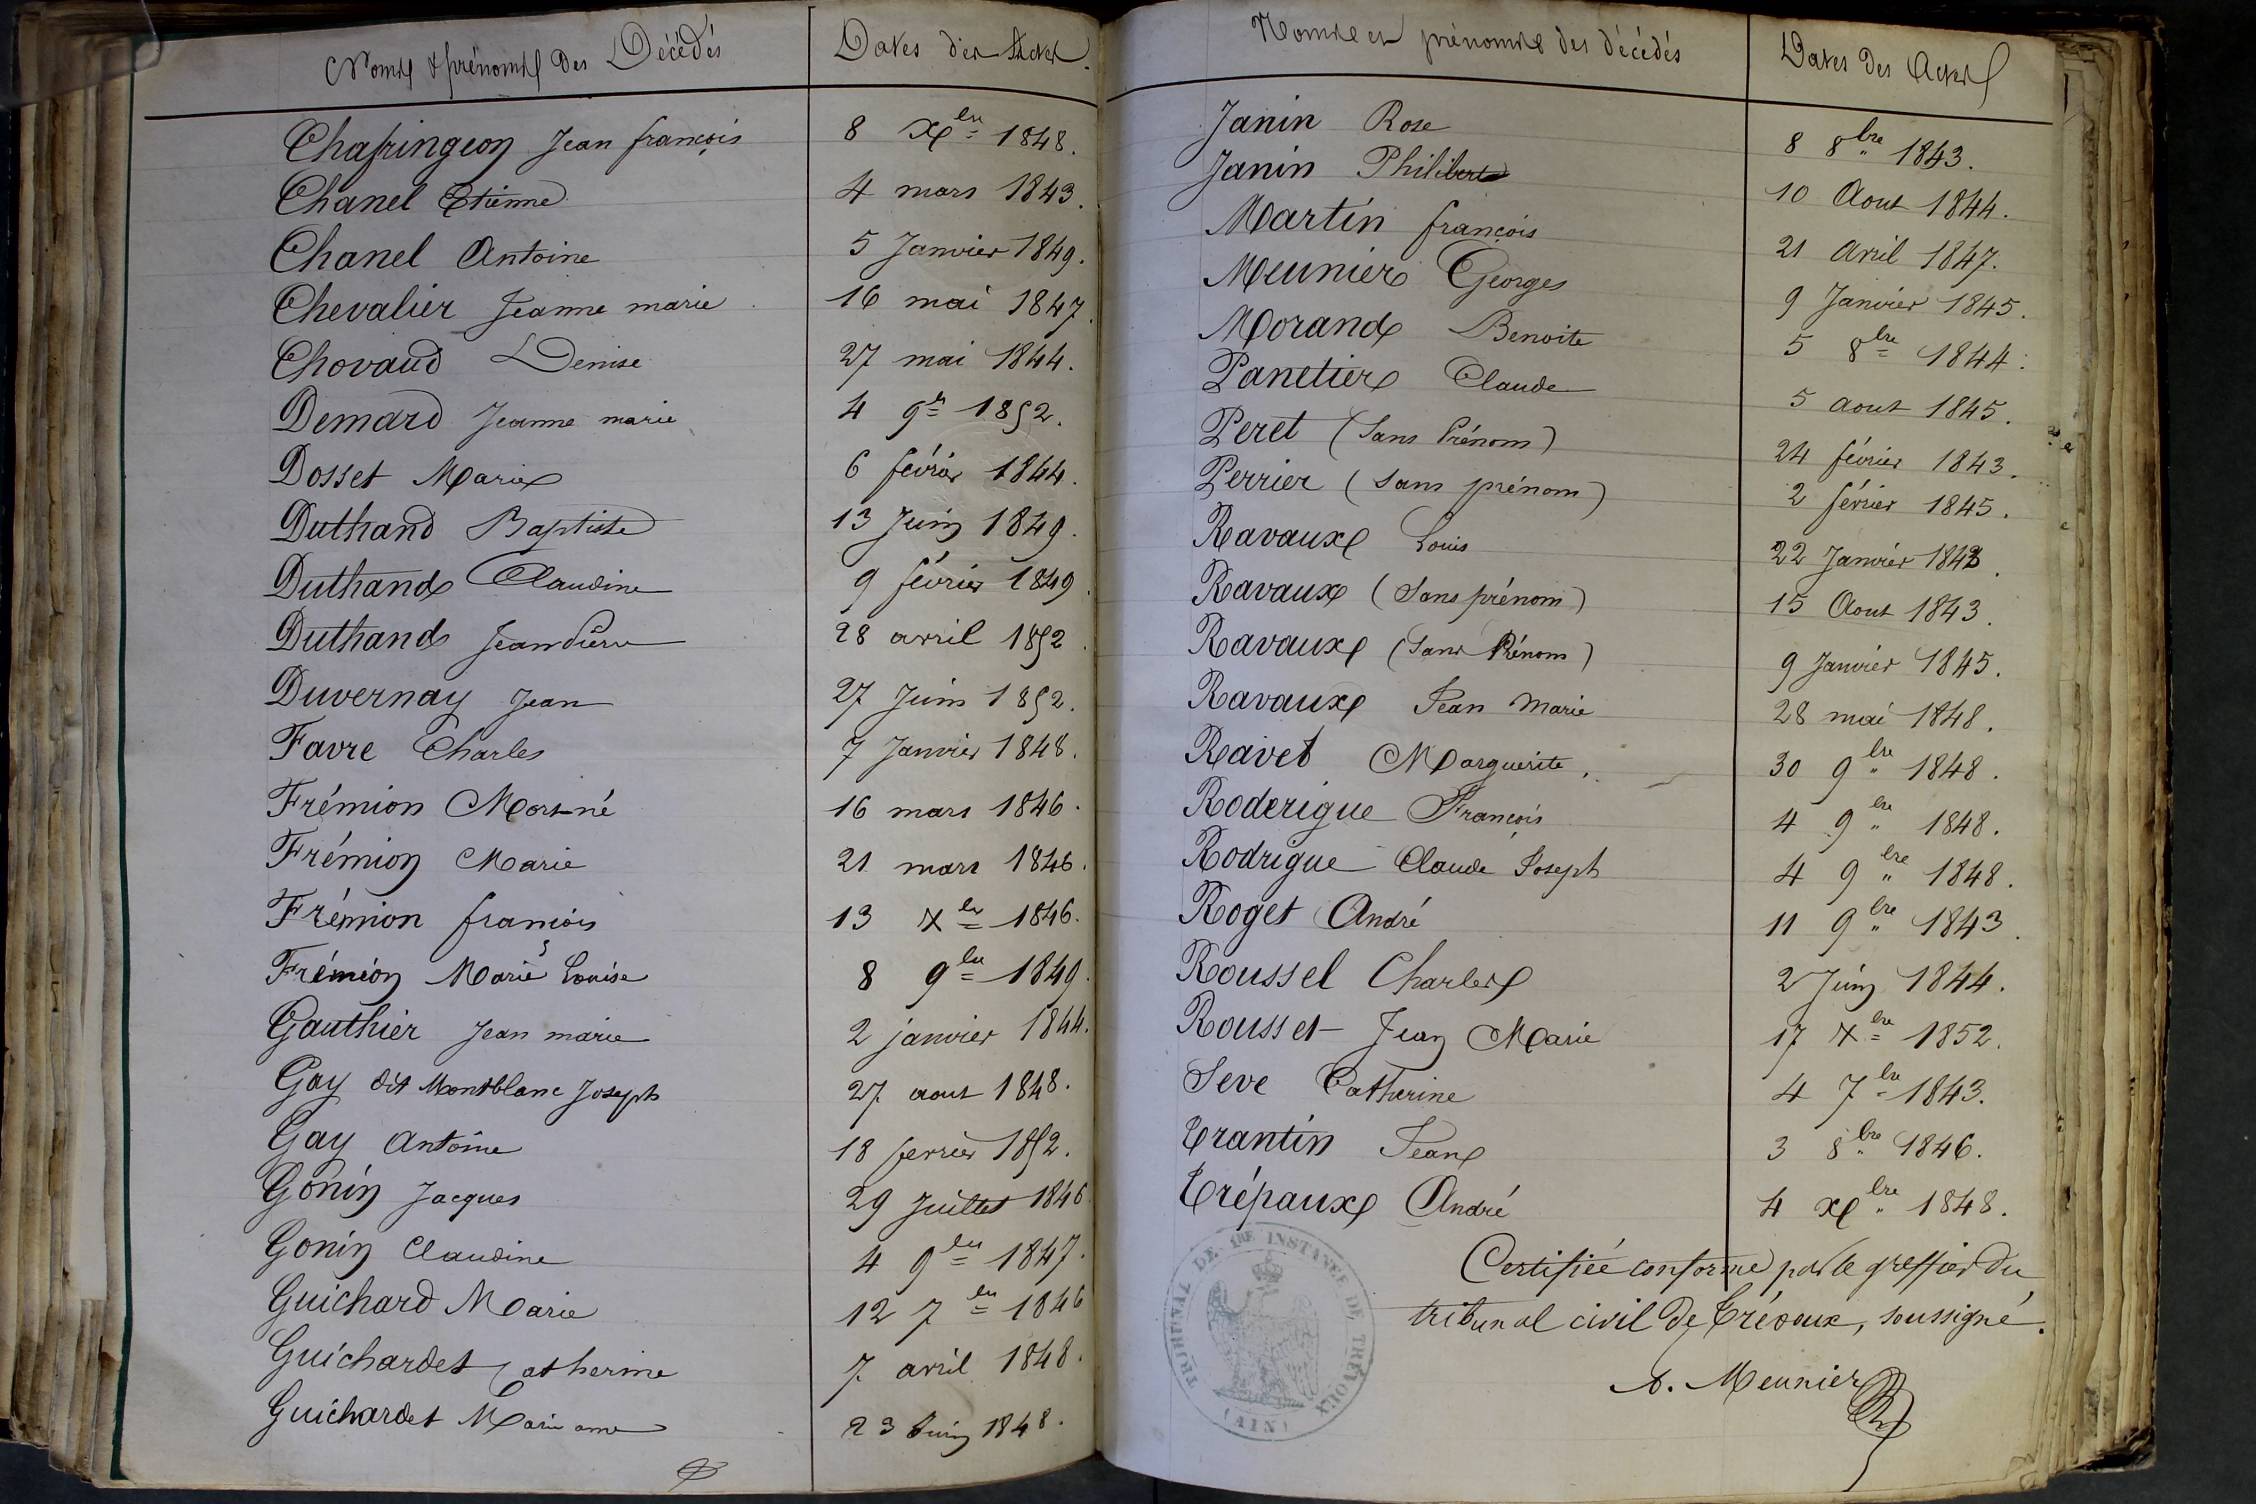 Noms & prénoms des Décédés Dates des Actes.
Chapingeon Jean françois 8 Xbre 1848.
Chanel Etienne 4 mars 1843.
Chanel Antoine 5 Janvier 1849.
Chevalier Jeanne marie 16 mai 1847.
Chovaud Denise 27 mai 1844.
Demard Jeanne marie 4 9re 1852.
Dosset Marie 6 février 1844.
Duthand Baptiste 13 Juin 1849.
Duthand Claudine 9 février 1849
Duthand Jean Pierre 28 avril 1852
Duvernay Jean 27 Juin 1852.
Favre Charles 7 Janvier 1848.
Frémion Mort-né 16 mars 1846.
Frémion Marie 21 mars 1846.
Frémion françois 13 Xbre 1846.
Frémion Marie Louise 8 9bre 1849.
Gauthier Jean marie 2 janvier 1844.
Gay dit Montblanc Joseph 27 aout 1848.
Gay Antoine 18 fevrier 1852.
Gonin Jacques 29 Juillet 1846
Gonin Claudine 4 9bre 1847.
Guichard Marie 12 7bre 1846
Guichardet Catherine 7 avril 1848.
Guichardet Marie anne 23 Juin 1848.
Noms et prénoms des décédés Dates des Actes
Janin Rose 8 8bre 1843.
Janin Philibert 10 Aout 1844.
Martin françois 21 Avril 1847.
Meunier Georges 9 Janvier 1845.
Morand Benoite 5 8bre 1844.
Panetier Claude 5 aout 1845.
Peret (Sans Prénom) 24 février 1843.
Perrier (Sans prénom) 2 février 1845.
Ravaux Louis 22 Janvier 1843.
Ravaux (Sans prénom) 15 Aout 1843.
Ravaux (Sans Prénom) 9 Janvier 1845.
Ravaux Jean Marie 28 mai 1848.
Ravet Marguerite. 30 9bre 1848.
Roderigue François 4 9bre 1848.
Rodrigue Claude Joseph 4 9bre 1848.
Roget André 11 9bre 1843.
Roussel Charles 2 Juin 1844.
Rousset Jean Marie 17 Xbre 1852.
Seve Catherine 4 7bre 1843.
Trantin Jean 3 8bre 1846.
Trépaux André 4 Xbre 1848.
Certifiée conforme par le greffier du
tribunal civil de Trévoux, soussigné.
A. Meunier
TRIBUNAL DE 1RE INSTANCE DE TRÉVOUX
(AIN)